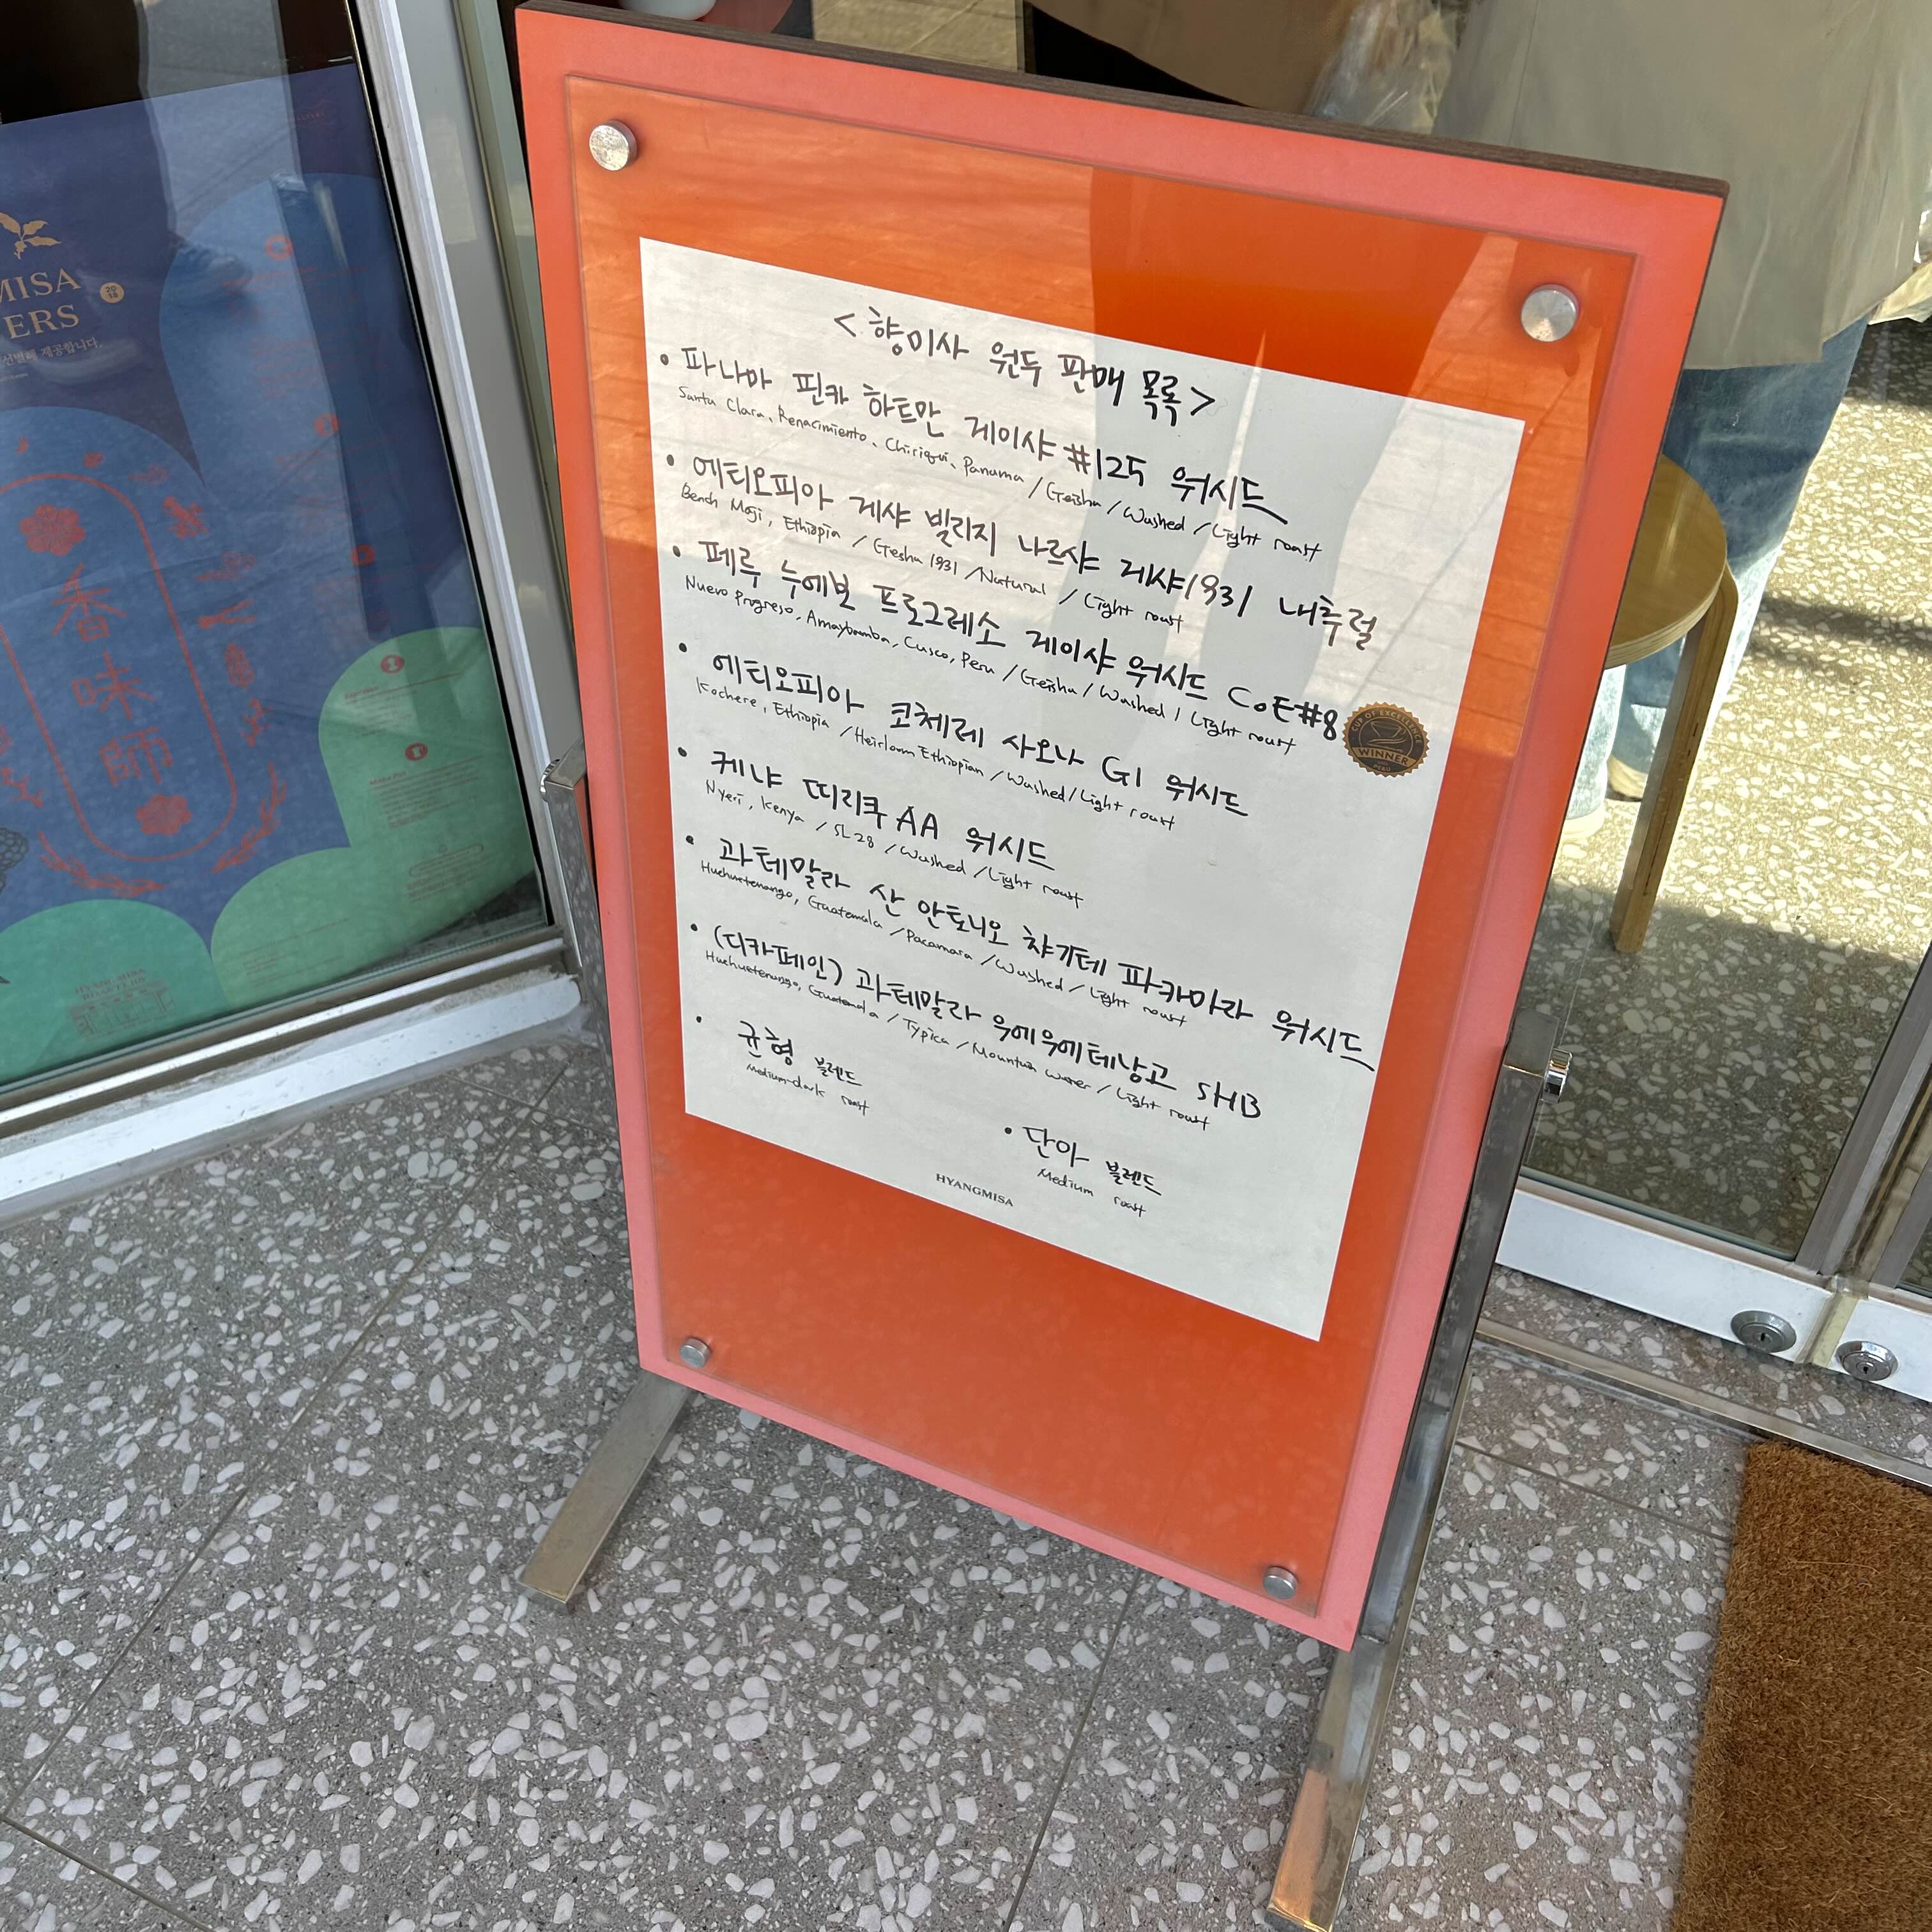 MISA
ERS
20
18
제공합니다.
香味師
<향미사 원두 판매 목록>
• 파나마 핀카 하트만 게이샤 #125 워시드
Santa Clara, Renacimiento, Chiriqui, Panama / Geisha / Washed / Light roast
• 에티오피아 게샤 빌리지 나르샤 게샤1931 내추럴
Bench Maji, Ethiopia / Gesha 1931 / Natural / Light roast
• 페루 누에보 프로그레소 게이샤 워시드 CoE#8
Nuevo Progreso, Amaybamba, Cusco, Peru / Geisha / Washed / Light roast
CUP OF EXCELLENCE
WINNER
PERU
• 에티오피아 코체레 사오나 G1 워시드
Kochere, Ethiopia / Heirloom Ethiopian / Washed / Light roast
• 케냐 띠리쿠 AA 워시드
Nyeri, Kenya / SL28 / Washed / Light roast
• 과테말라 산 안토니오 챠기테 파카마라 워시드
Huehuetenango, Guatemala / Pacamara / Washed / Light roast
• (디카페인) 과테말라 우에우에테낭고 SHB
Huehuetenango, Guatemala / Typica / Mountain Water / Light roast
• 균형 블렌드
Medium-dark roast
• 단아 블렌드
Medium roast
HYANGMISA